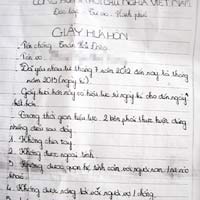 CỘNG HÒA XÃ HỘI CHỦ NGHĨA VIỆT NAM
Độc lập - Tự do - Hạnh phúc
GIẤY HỨA HÔN
- Tôi chồng: Trần
- Tôi vợ:
- Đã yêu nhau từ tháng 7 năm 2012 đến nay là tháng
năm 2013 (ngày kí)
- Giấy hứa hôn này có hiệu lực từ ngày kí cho đến ngày
kết hôn.
- Trong thời gian hiệu lực 2 bên phải thực hiện đúng
những điều sau đây
1. Không chia tay
2. Không được ngoại tình
3. Không được quan hệ tình cảm với người
khác
4. Không được sống với người